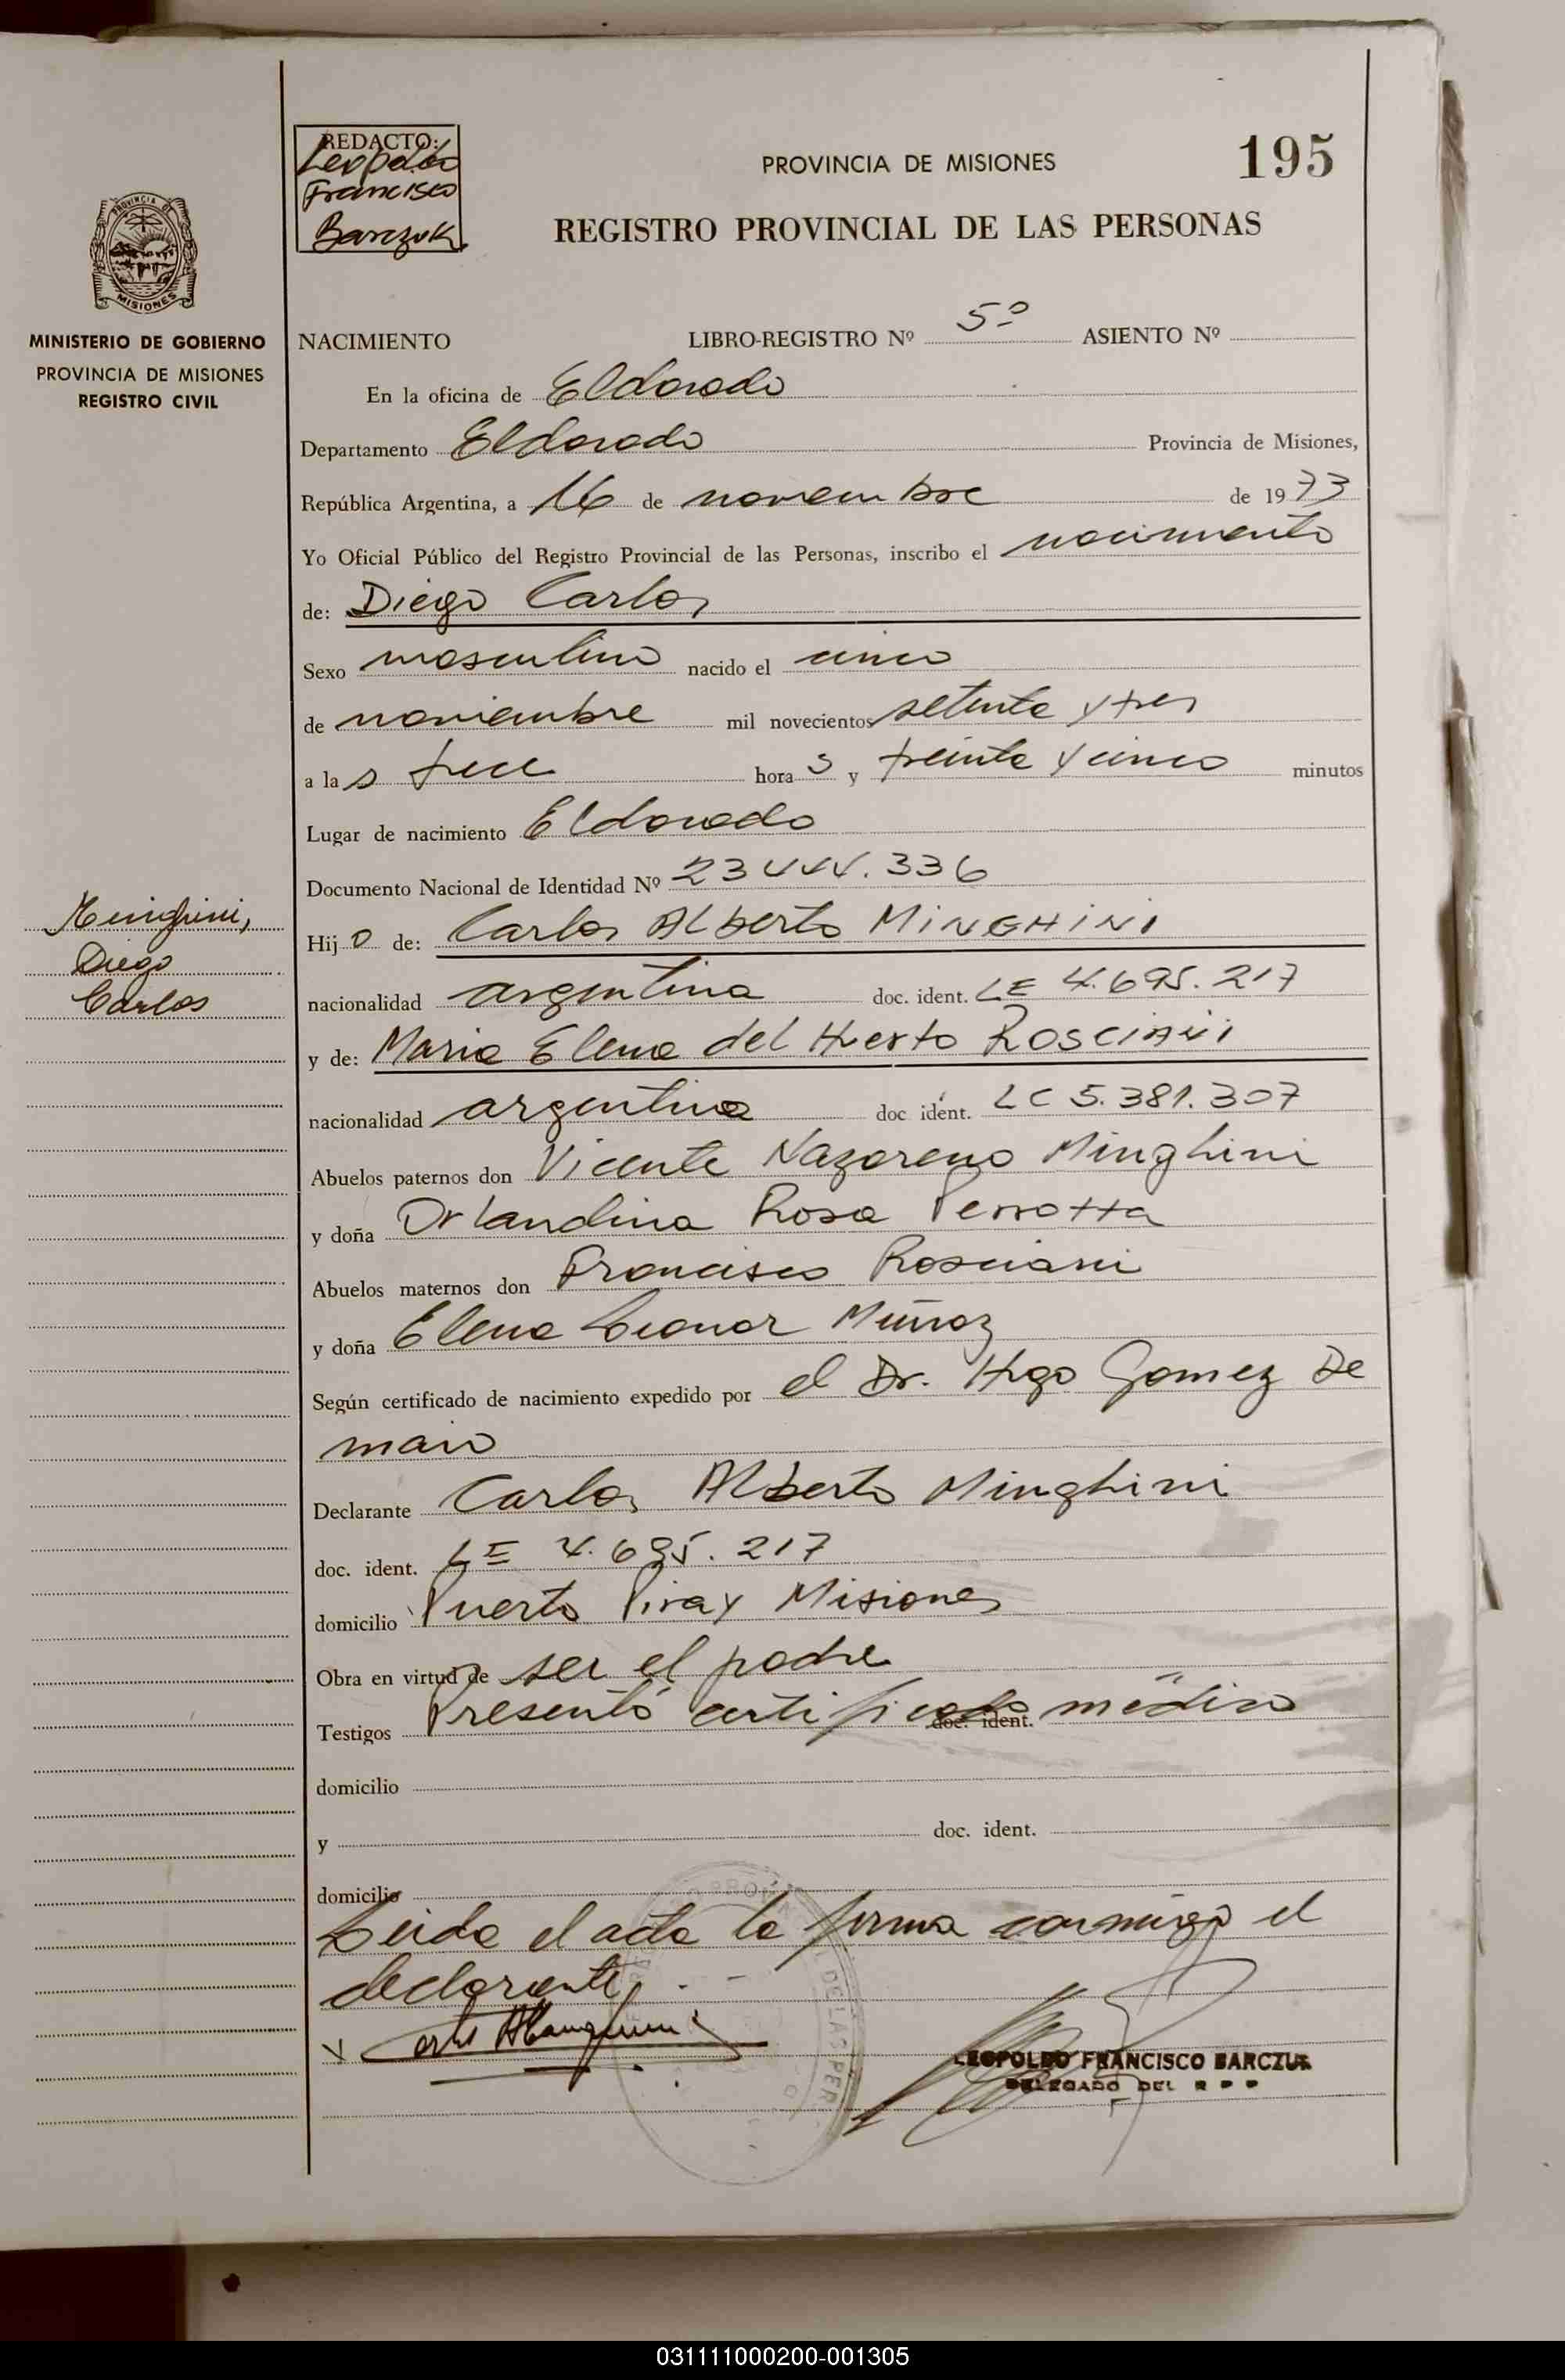 REDACTO:
Leopoldo
Francisco
Barczuk
PROVINCIA DE MISIONES
195
REGISTRO PROVINCIAL DE LAS PERSONAS
PROVINCIA DE
MISIONES
MINISTERIO DE GOBIERNO
PROVINCIA DE MISIONES
REGISTRO CIVIL
NACIMIENTO LIBRO-REGISTRO Nº 5º ASIENTO Nº
En la oficina de Eldorado
Departamento Eldorado Provincia de Misiones,
República Argentina, a 16 de noviembre de 1973
Yo Oficial Público del Registro Provincial de las Personas, inscribo el nacimiento
de: Diego Carlos
Sexo masculino nacido el cinco
de noviembre mil novecientos setenta y tres
a las trece horas y treinta y cinco minutos
Lugar de nacimiento Eldorado
Documento Nacional de Identidad Nº 23444.336
Minghini,
Diego
Carlos
Hijo de: Carlos Alberto MINGHINI
nacionalidad argentina doc. ident. LE 4.695.217
y de: Maria Elena del Huerto Rosciani
nacionalidad argentina doc ident. LC 5.381.307
Abuelos paternos don Vicente Nazareno Minghini
y doña Orlandina Rosa Perrotta
Abuelos maternos don Francisco Rosciani
y doña Elena Leonor Muñoz
Según certificado de nacimiento expedido por el Dr. Hugo Gomez De
maio
Declarante Carlos Alberto Minghini
doc. ident. LE 4.695.217
domicilio Puerto Piray Misiones
Obra en virtud de ser el padre
Testigos Presentó certificado doc. ident. médico
domicilio
y doc. ident.
domicilio
Leida el acta la firma conmigo el
declarante
LEOPOLDO FRANCISCO BARCZUK
DELEGADO DEL R P P
031111000200-001305